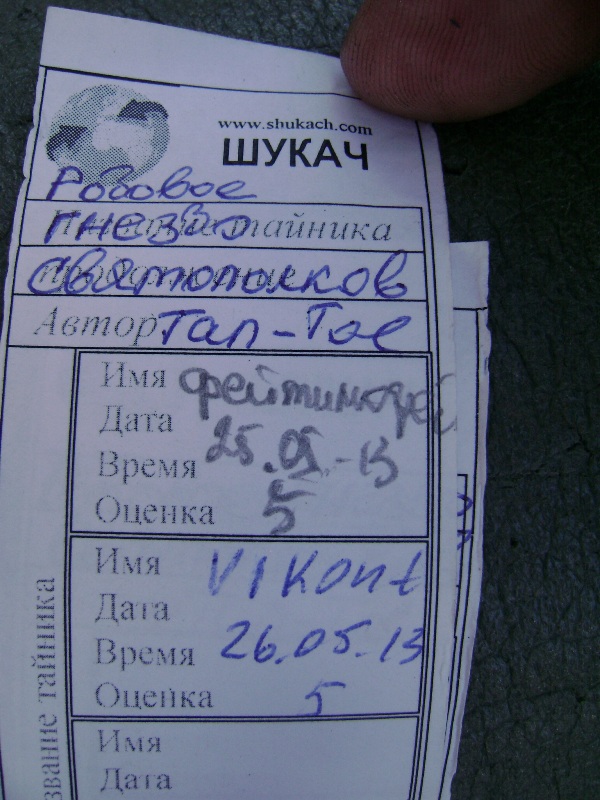 www.shukach.com
ШУКАЧ
Родовое
гнездо тайника
Святополков
Автор Тал-Тос
Имя
Дата 25.05.13
Время
Оценка 5
Имя VIKont
Дата
Время 26.05.13
Оценка 5
Имя
Дата
звание тайника